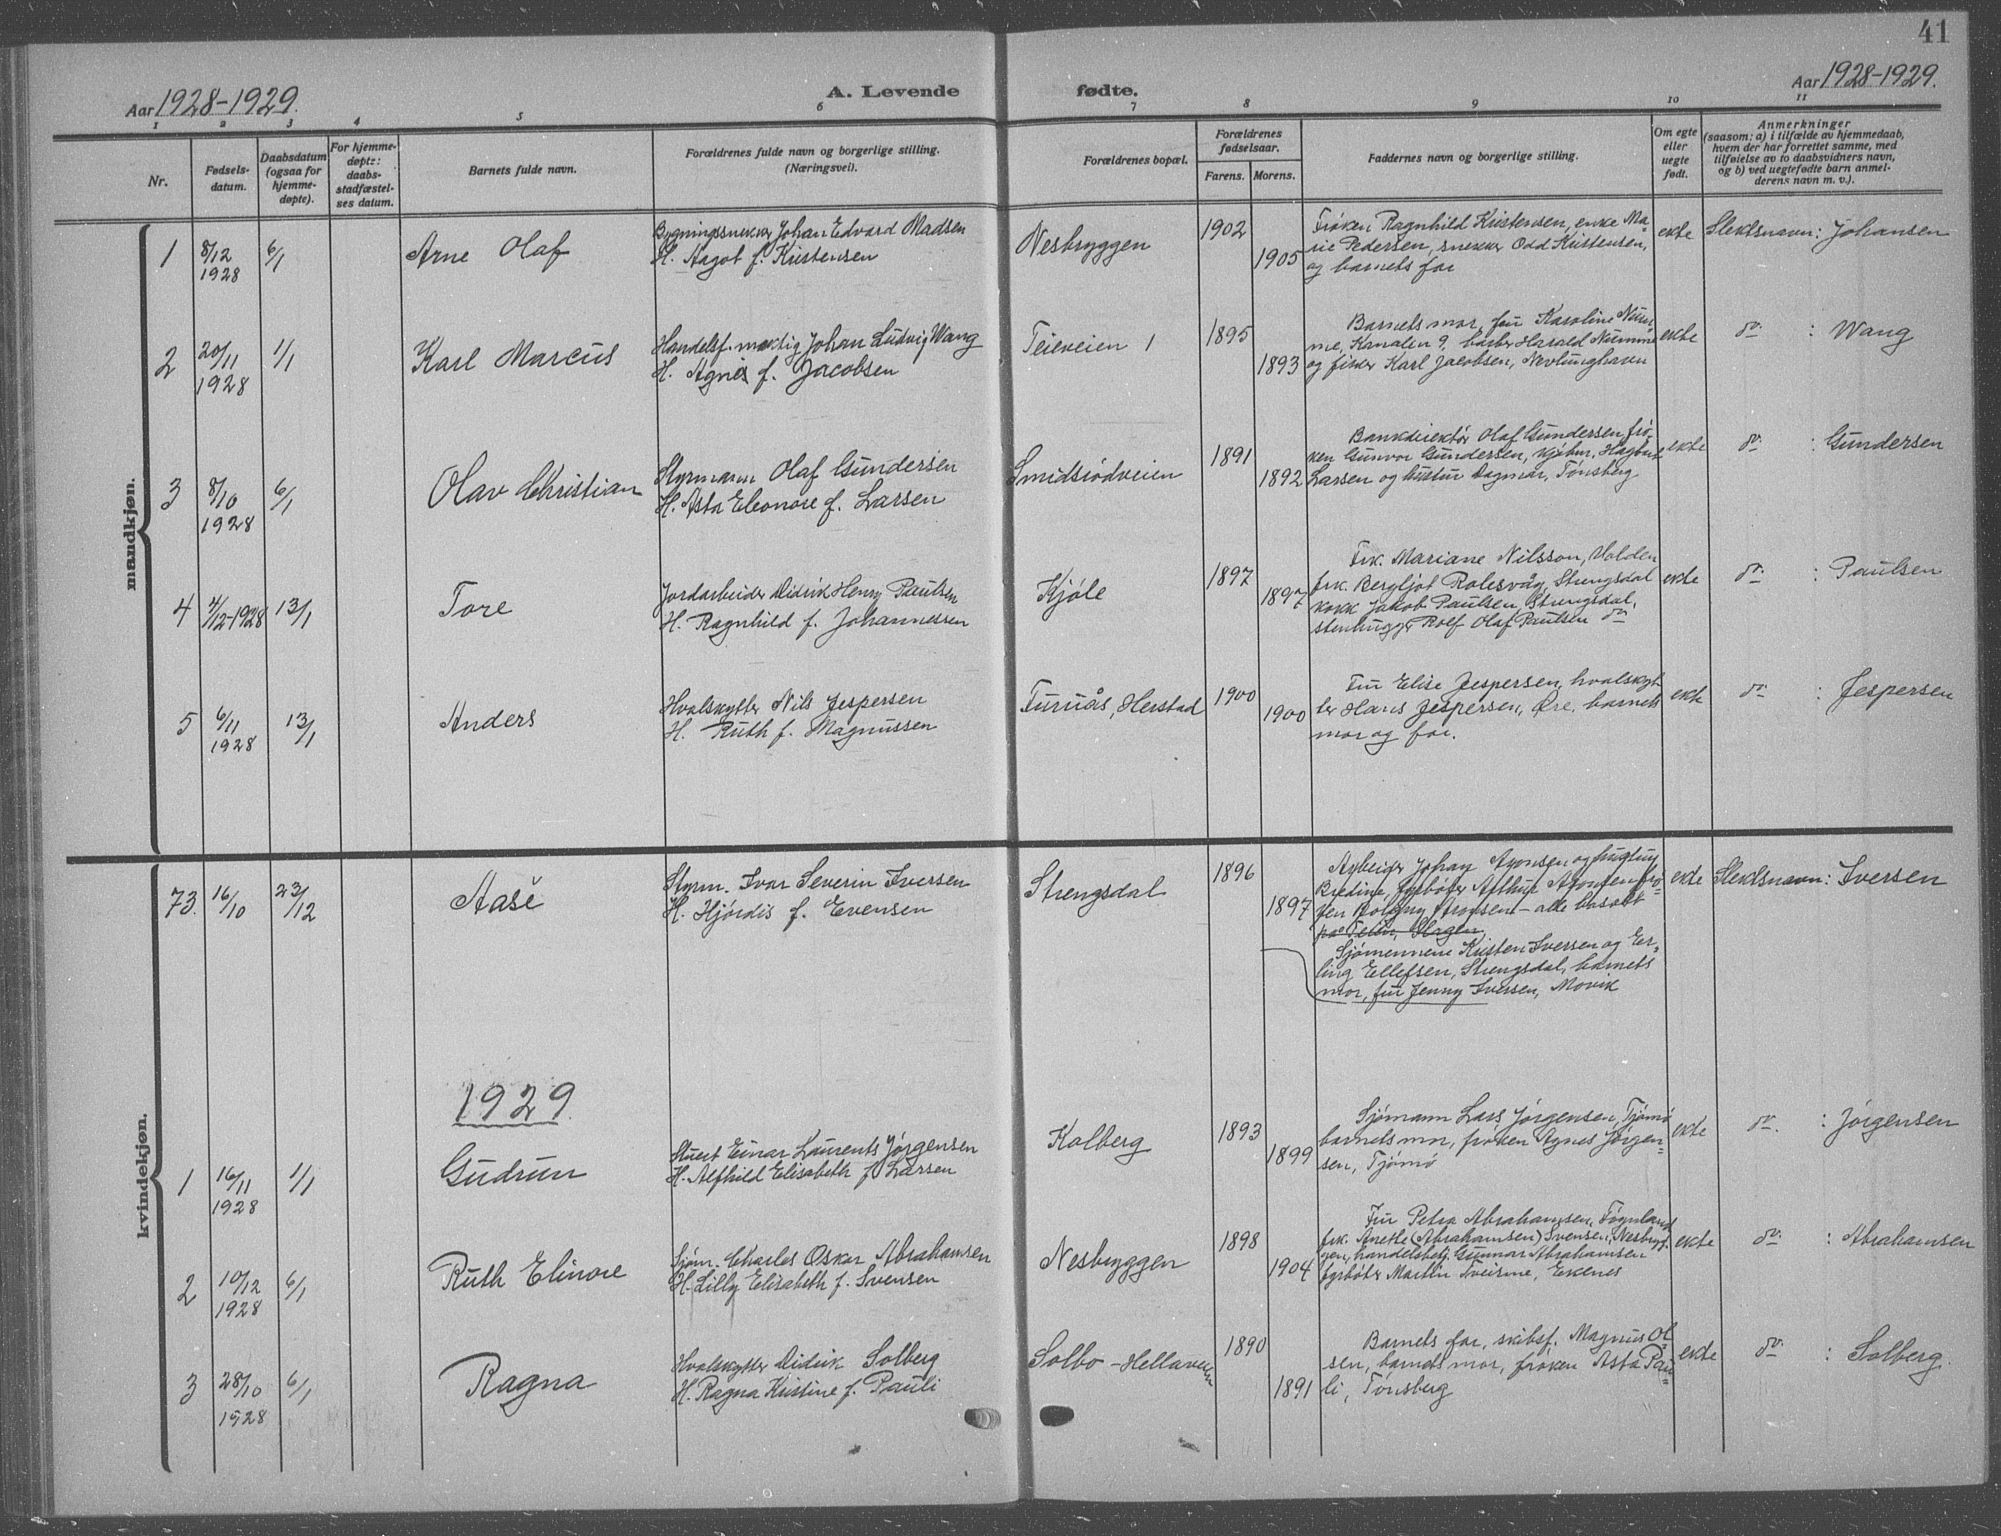 41
Aar 1928-1929.
A. Levende
fødte.
Aar 1928-1929.
1 2 3 4 5 6 7 8 9 10 11
Nr.
Fødsels-
datum.
Daabsdatum
(ogsaa for
hjemme-
døpte).
For hjemme-
døpte:
daabs-
stadfæstel-
ses datum.
Barnets fulde navn.
Forældrenes fulde navn og borgerlige stilling.
(Næringsvei).
Forældrenes bopæl.
Forældrenes
fødselsaar.
Farens. Morens.
Faddernes navn og borgerlige stilling.
Om egte
eller
uegte
født.
Anmerkninger
(saasom: a) i tilfælde av hjemmedaab,
hvem der har forrettet samme, med
tilføielse av to daabsvidners navn,
og b) ved uegtefødte barn anmel-
derens navn m. v.).
mandkjøn.
1
8/12
1928
6/1
Arne Olaf
Bygningssnekker Johan Edvard Madsen
H. Aagot f. Kristensen
Nesbryggen
1902
1905
Frøken Ragnhild Kristensen, enke Ma-
rie Pedersen, snekker Odd Kristensen,
og barnets far
ekte
Slektsnavn: Johansen
2
20/11
1928
1/1
Karl Marcus
Handelsf.mektig Johan Ludvig Wang
H. Agnes f. Jacobsen
Teieveien 1
1895
1893
Barnets mor, fru Karoline Num-
me, Kanalen 9, barber Harald Numme
og fisker Karl Jacobsen, Nevlunghavn
ekte
do : Wang
3
8/10
1928
6/1
Olav Christian
Styrmann Olaf Gundersen
H. Asta Eleonore f. Larsen
Smidsrødveien
1891
1892
Bankdirektør Olaf Gundersen, frø-
ken Gunvor Gundersen, kjøbm. Hagbart
Larsen og hustru Dagmar, Tønsberg
ekte
do : Gundersen
4
4/12-1928
13/1
Tore
Jordarbeider Didrik Henry Paulsen
H. Ragnhild f. Johannessen
Kjøle
1897
1897
Frk. Mariane Nilsson, Halden
frk. Bergljot Rolesvåg, Strengsdal
kokk Jakob Paulsen, Strengsdal,
stenhugger Rolf Olaf Paulsen do
ekte
do : Paulsen
5
6/11
1928
13/1
Anders
Hvalskytter Nils Jespersen
H. Ruth f. Magnussen
Furuås, Herstad
1900
1900
Fru Elise Jespersen, hvalskyt
ter Hans Jespersen, Øre, barnets
mor og far.
ekte
do : Jespersen
kvindekjøn.
73.
16/10
23/12
Aase
Styrm. Ivar Severin Iversen
H. Hjørdis f. Evensen
Strengsdal
1896
1897
Arbeider Johan Aronsen og hustru
Bredine, fyrbøter Arthur Aronsen, frø-
ken Solgny Aronsen – alle bosatt
på Teien, Slagen.
Sjømennene Kristen Iversen og Er-
ling Ellefsen, Strengsdal, barnets
mor, fru Jenny Iversen, Movik
ekte
Slektsnavn: Iversen
1929
1
16/11
1928
1/1
Gudrun
Stuert Einar Laurents Jørgensen
H. Alfhild Elisabeth f. Larsen
Kolberg
1893
1899
Sjømann Lars Jørgensen, Tjømø
barnets mor, frøken Agnes Jørgen-
sen, Tjømø
ekte
do. : Jørgensen
2
10/12
1928
6/1
Ruth Elinore
Sjøm. Charles Oskar Abrahamsen
H. Lilly Elisabeth f. Svensen
Nesbryggen
1898
1904
Fru Petra Abrahamsen, Føynland
frk. Anethe (Abrahamsen) Svensen, Nesbryg-
gen, handelsbetj. Gunnar Abrahamsen
fyrbøter Martin Tveirme, Ekenes
ekte
do : Abrahamsen
3
28/10
1928
6/1
Ragna
Hvalskytter Didrik Solberg
H. Ragna Kristine f. Pauli
Solbo - Hellaveien
1890
1891
Barnets far, skibsf. Magnus Ol
sen, barnets mor, frøken Asta Pau-
li, Tønsberg
ekte
do : Solberg.